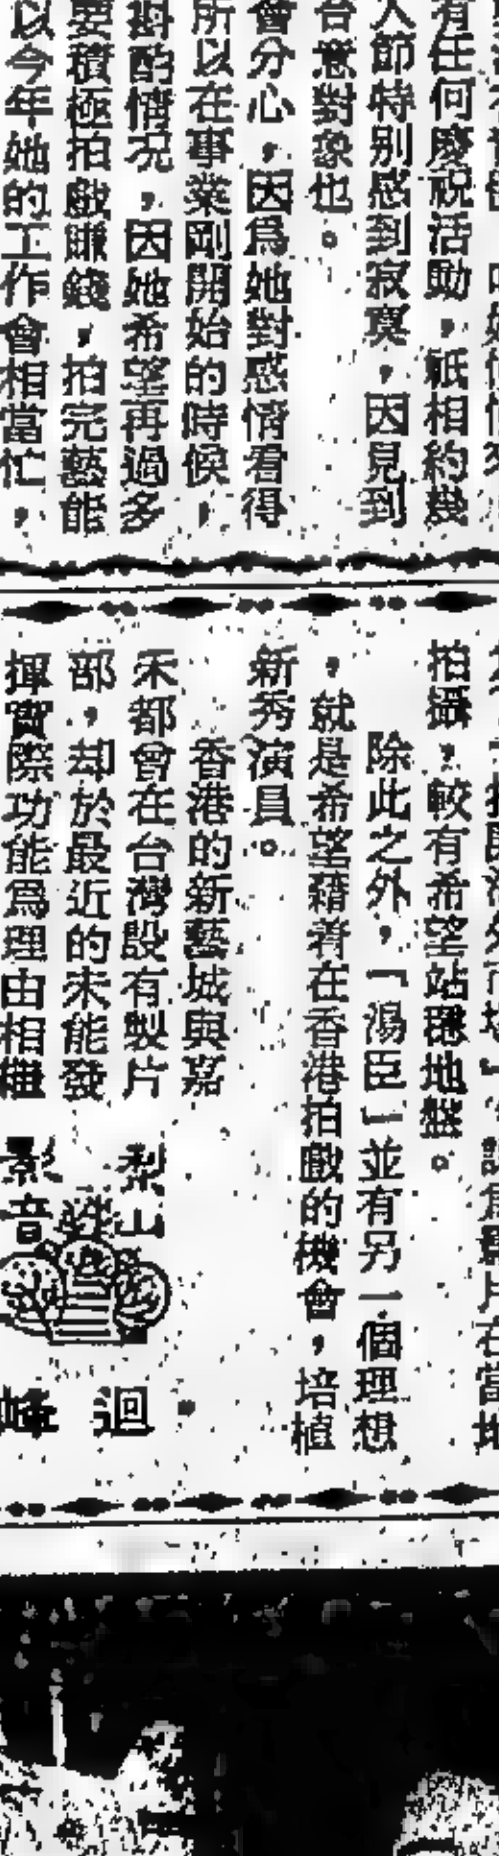 有任何慶祝活動，祇相約幾
人節特別感到寂寞，因見到
合意對象也。
會分心，因爲她對感情看得
所以在事業剛開始的時候，
斟酌情况，因她希望再過多
要積極拍戲賺錢，拍完藝能
以今年她的工作會相當忙，
拍攝，較有希望站穩地盤。
除此之外，「湯臣」並有另一個理想
，就是希望藉着在香港拍戲的機會，培植
新秀演員。
香港的新藝城與嘉
禾都會在台灣設有製片
部，却於最近的未能發
揮實際功能爲理由相繼
梨山
影音
迴